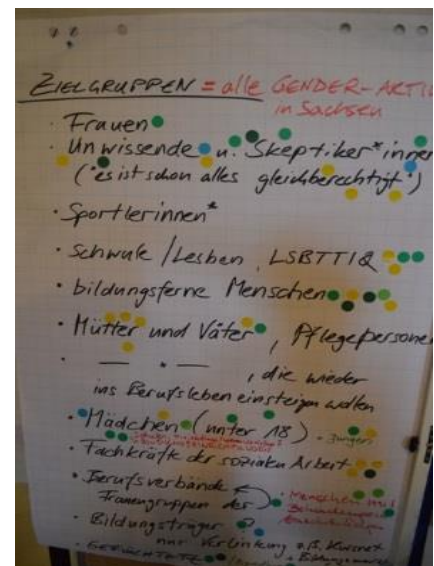 ZIELGRUPPEN = alle GENDER-AKTI
in Sachsen
· Frauen
· Unwissende u. Skeptiker*innen
("es ist schon alles gleichberechtigt")
· Sportlerinnen*
· Schwule / Lesben, LSBTTIQ
· bildungsferne Menschen
· Mütter und Väter, Pflegepersone
· — " —, die wieder
ins Berufsleben einsteigen wollen
· Mädchen (unter 18) - Jungen
· Fachkräfte der sozialen Arbeit
· Berufsverbände
Frauengruppen der · Menschen mit
· Bildungsträger ?
nur Verlinkung z.B. Kursnet
· GEFLÜCHTETE